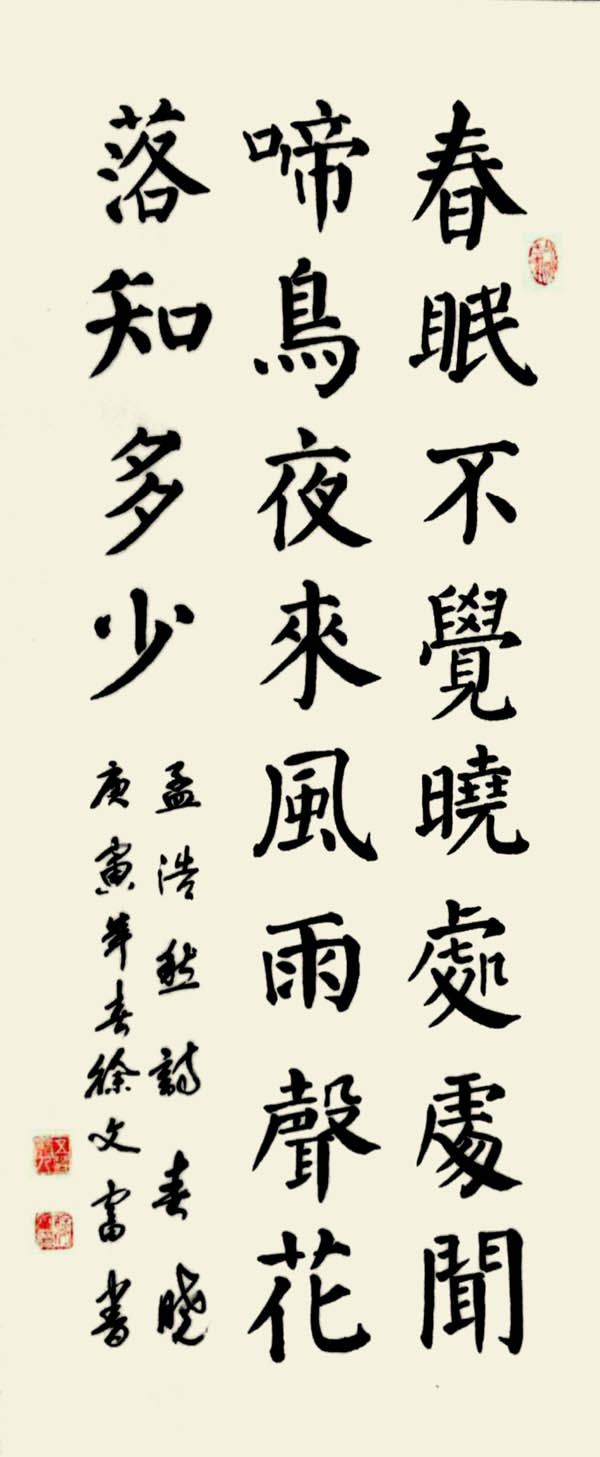 春眠不覺曉處處聞
啼鳥夜來風雨聲花
落知多少
孟浩然詩 春曉
庚寅年春徐文富書